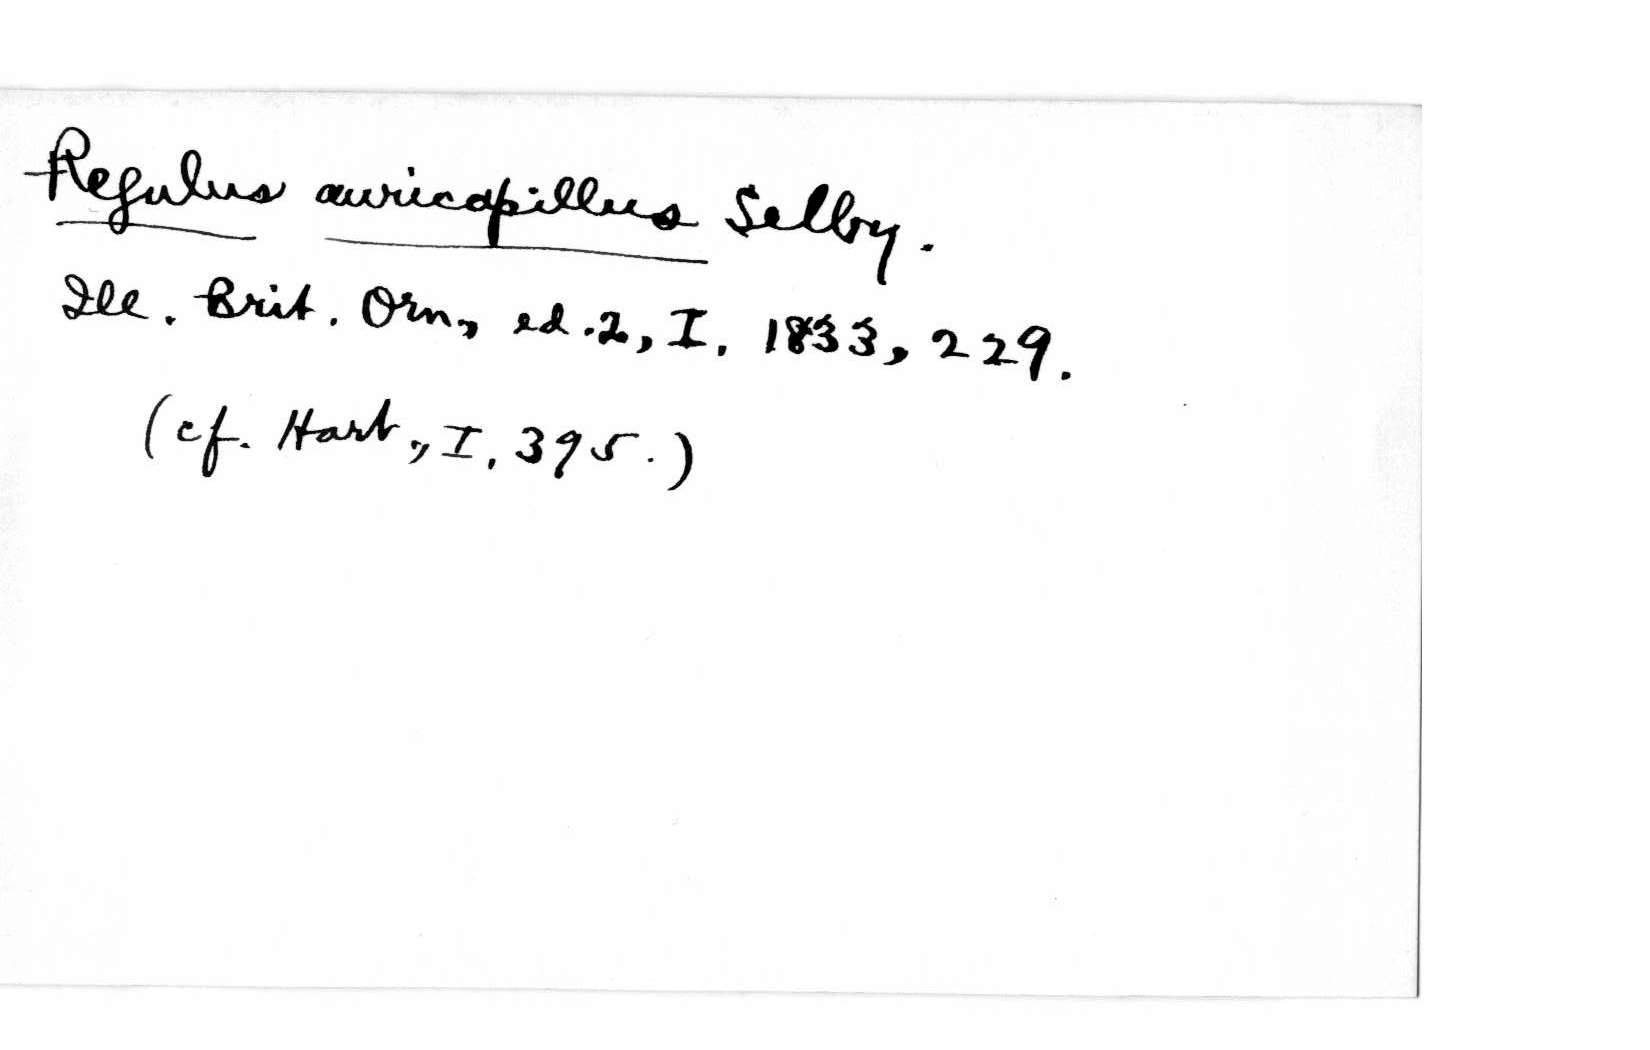 Regulus auricapillus Selby.
Ill. Brit. Orn., ed. 2, I, 1833, 229.
(cf. Hart., I, 395.)